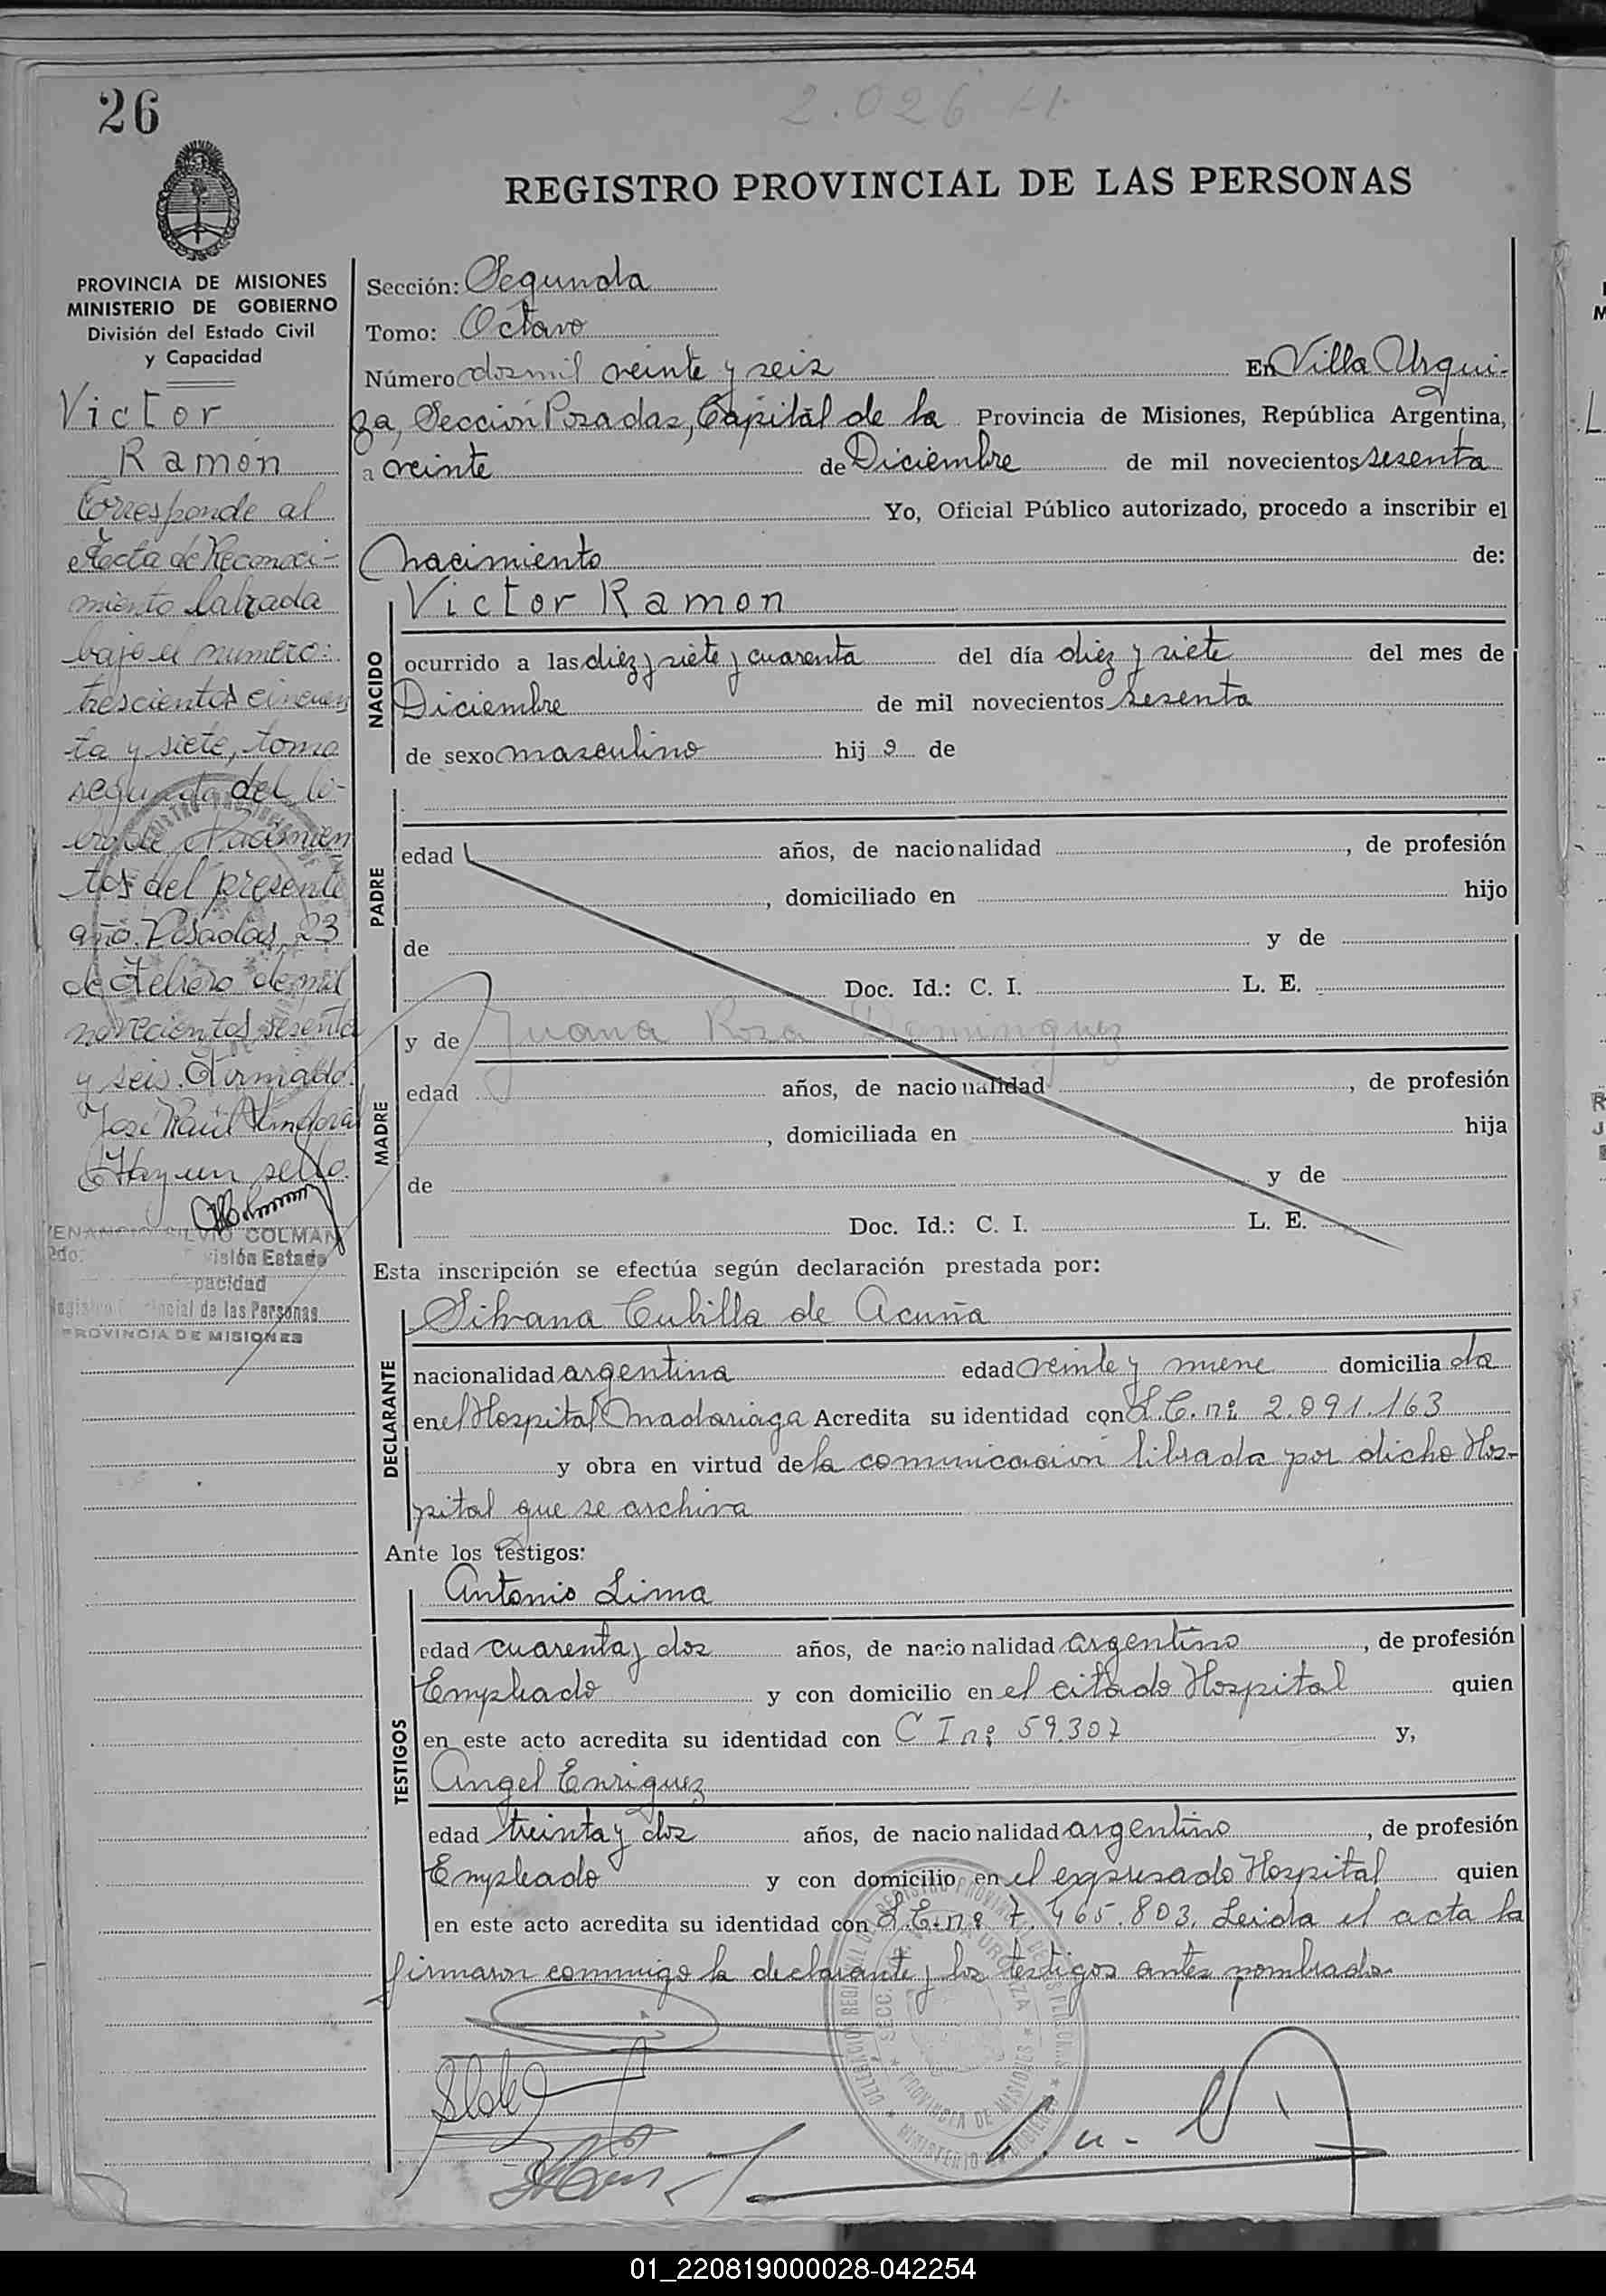 26
2.026
REGISTRO PROVINCIAL DE LAS PERSONAS
PROVINCIA DE MISIONES
MINISTERIO DE GOBIERNO
División del Estado Civil
y Capacidad
Victor
Ramón
Corresponde al
Acta de Reconoci-
miento labrada
bajo el numero:
trescientos cincuen
ta y siete, tomo
segundo del li-
bro de Nacimien
tos del presente
año. Posadas, 23
de Febrero de mil
novecientos sesenta
y seis. Firmado:
José Raúl
Hay un sello.
VENANCIO SILVIO COLMAN
División Estado
Capacidad
Registro Provincial de las Personas
PROVINCIA DE MISIONES
Sección: Segunda
Tomo: Octavo
Número dosmil veinte y seis En Villa Urqui-
za, Sección Posadas, Capital de la Provincia de Misiones, República Argentina,
a veinte de Diciembre de mil novecientos sesenta
Yo, Oficial Público autorizado, procedo a inscribir el
Nacimiento de:
NACIDO
Victor Ramon
ocurrido a las diez y siete y cuarenta del día diez y siete del mes de
Diciembre de mil novecientos sesenta
de sexo masculino hij o de
PADRE
edad años, de nacionalidad , de profesión
, domiciliado en hijo
de y de
Doc. Id.: C. I. L. E.
MADRE
y de Juana Rosa Dominguez
edad años, de nacionalidad , de profesión
, domiciliada en hija
de y de
Doc. Id.: C. I. L. E.
Esta inscripción se efectúa según declaración prestada por:
DECLARANTE
Silvana Cubilla de Acuña
nacionalidad argentina edad veinte y nueve domicilia da
en el Hospital Madariaga Acredita su identidad con L.C. nº 2.091.163
y obra en virtud de la comunicación librada por dicho Hos-
pital que se archiva
Ante los testigos:
TESTIGOS
Antonio Lima
edad cuarenta y dos años, de nacionalidad argentino , de profesión
Empleado y con domicilio en el citado Hospital quien
en este acto acredita su identidad con C I nº 59.307 y,
Angel Enriquez
edad treinta y dos años, de nacionalidad argentino , de profesión
Empleado y con domicilio en el expresado Hospital quien
en este acto acredita su identidad con L.E. nº 7.465.803. Leida el acta la
firmaron conmigo la declarante y los testigos antes nombrados
01_220819000028-042254